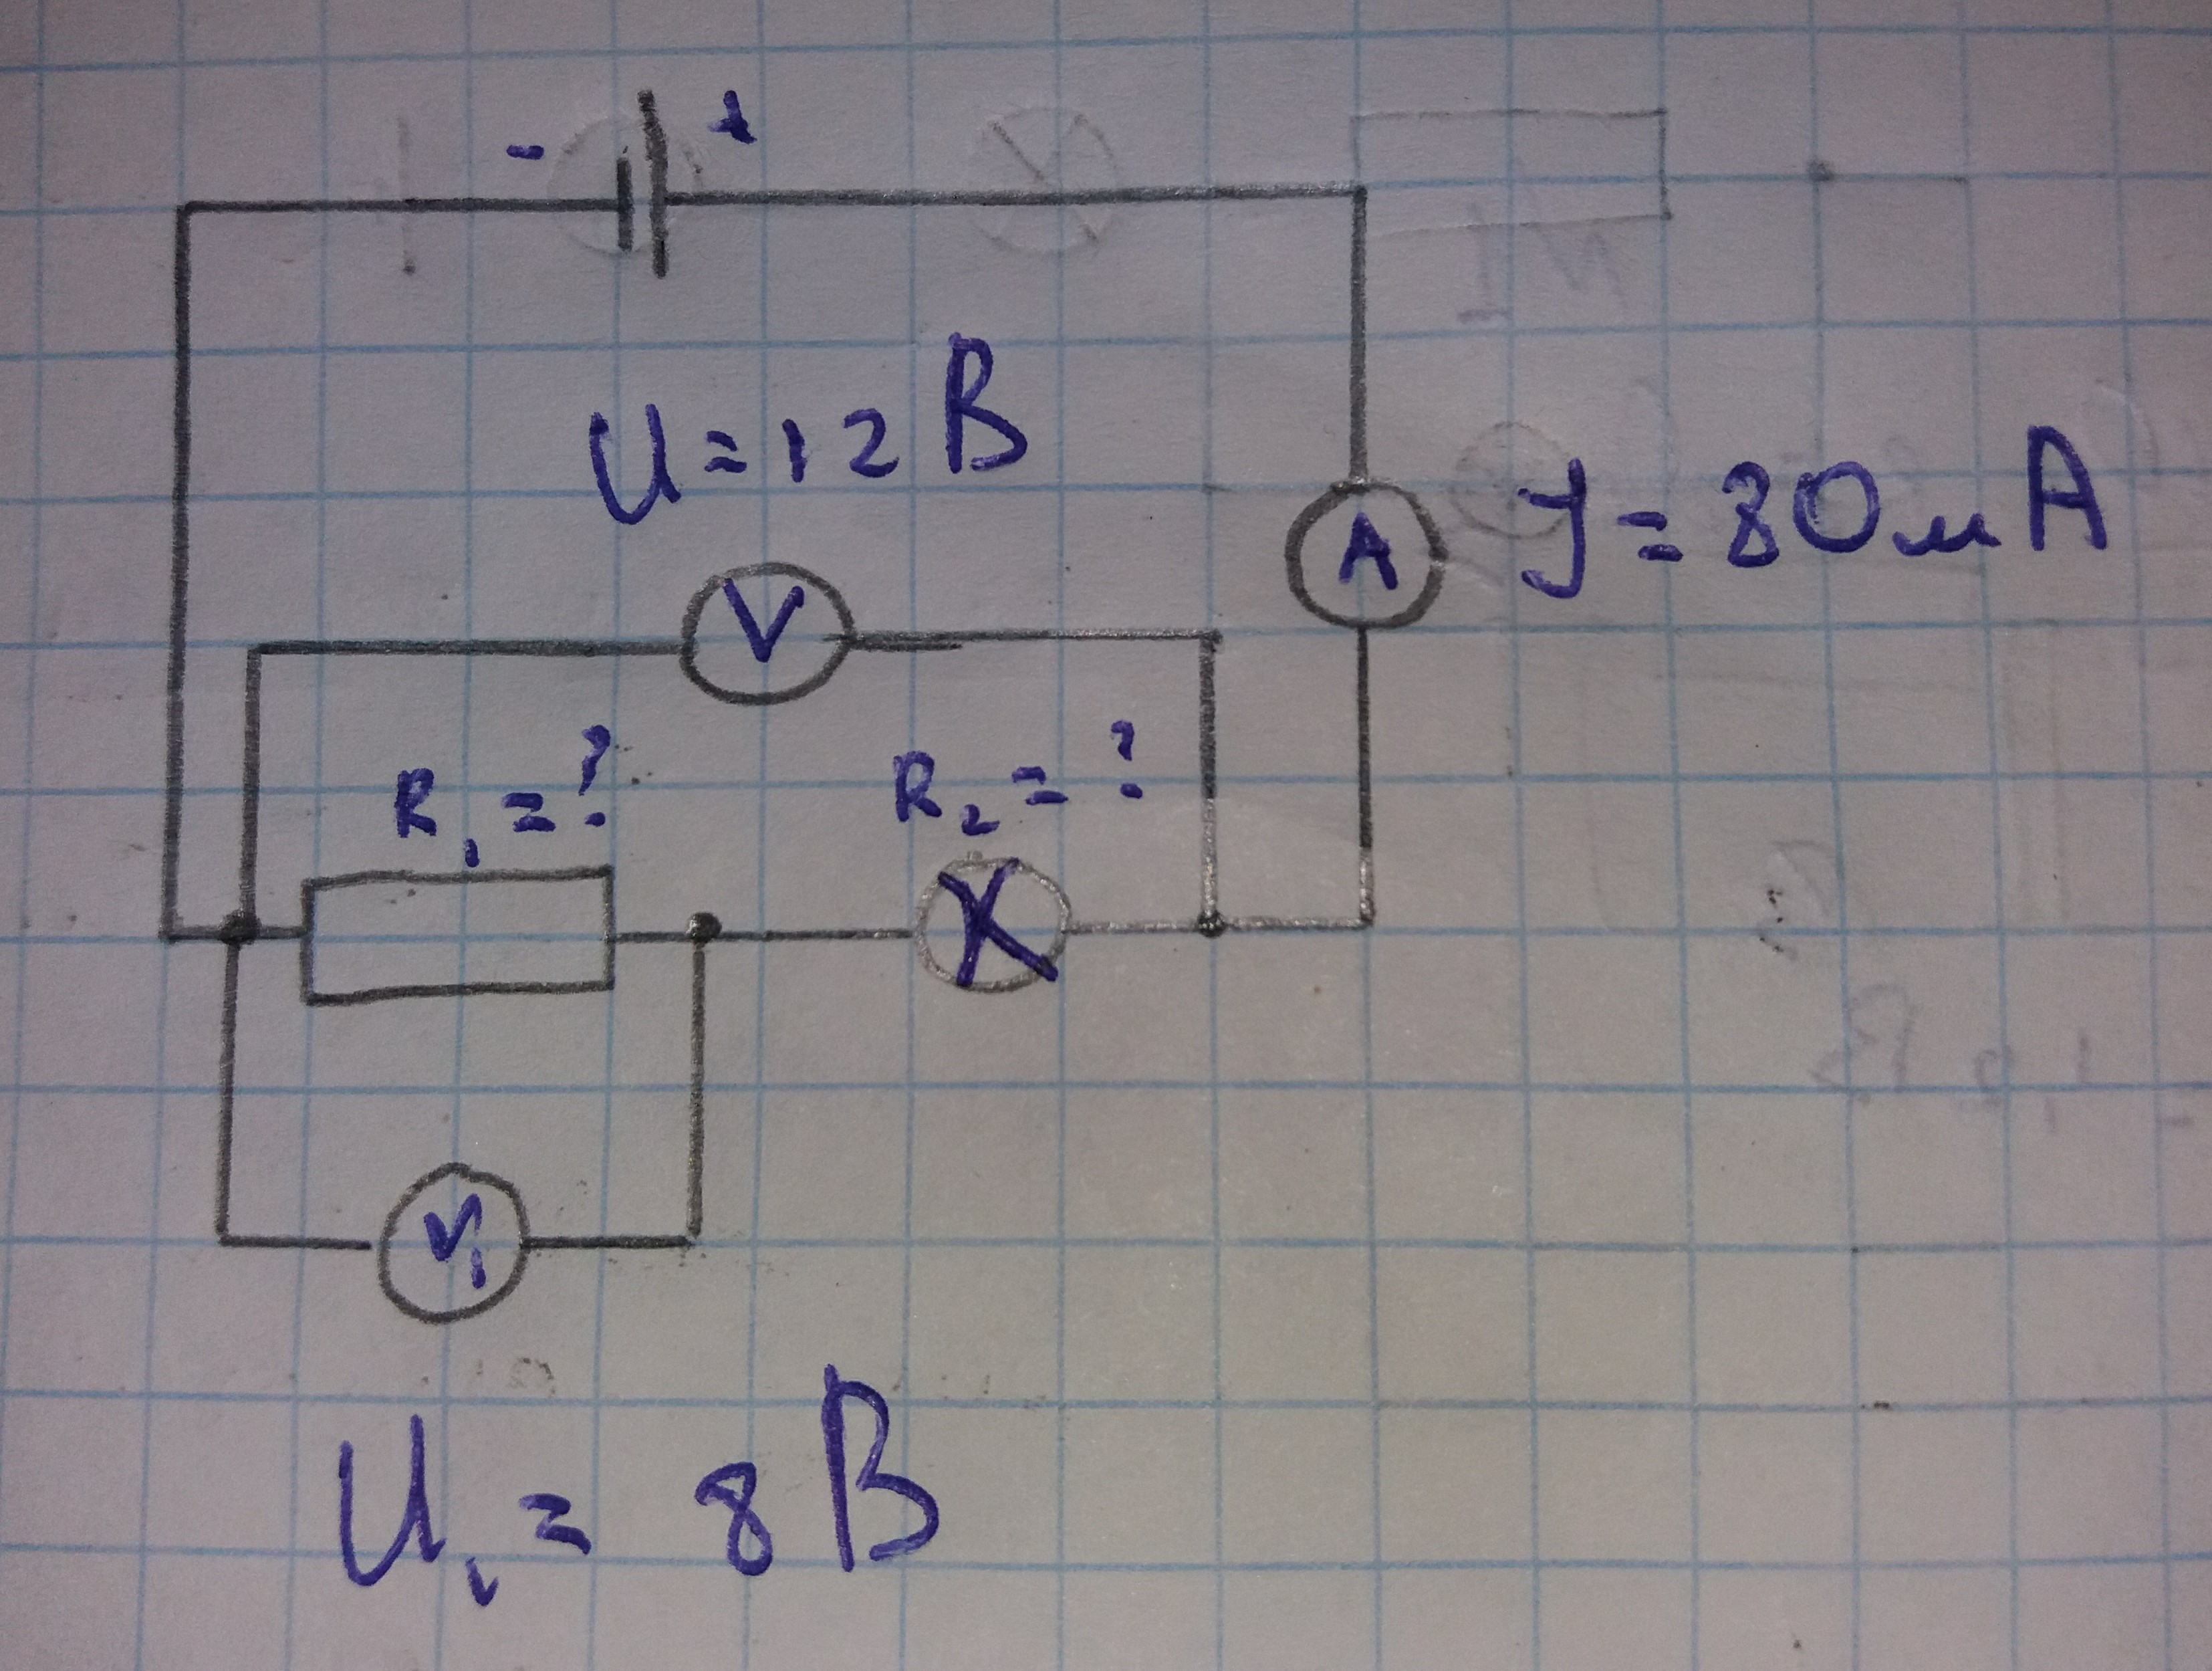 - +
U = 12 В
A J = 80 мА
V
R₁ = ? R₂ = ?
V₁
U₁ = 8 В